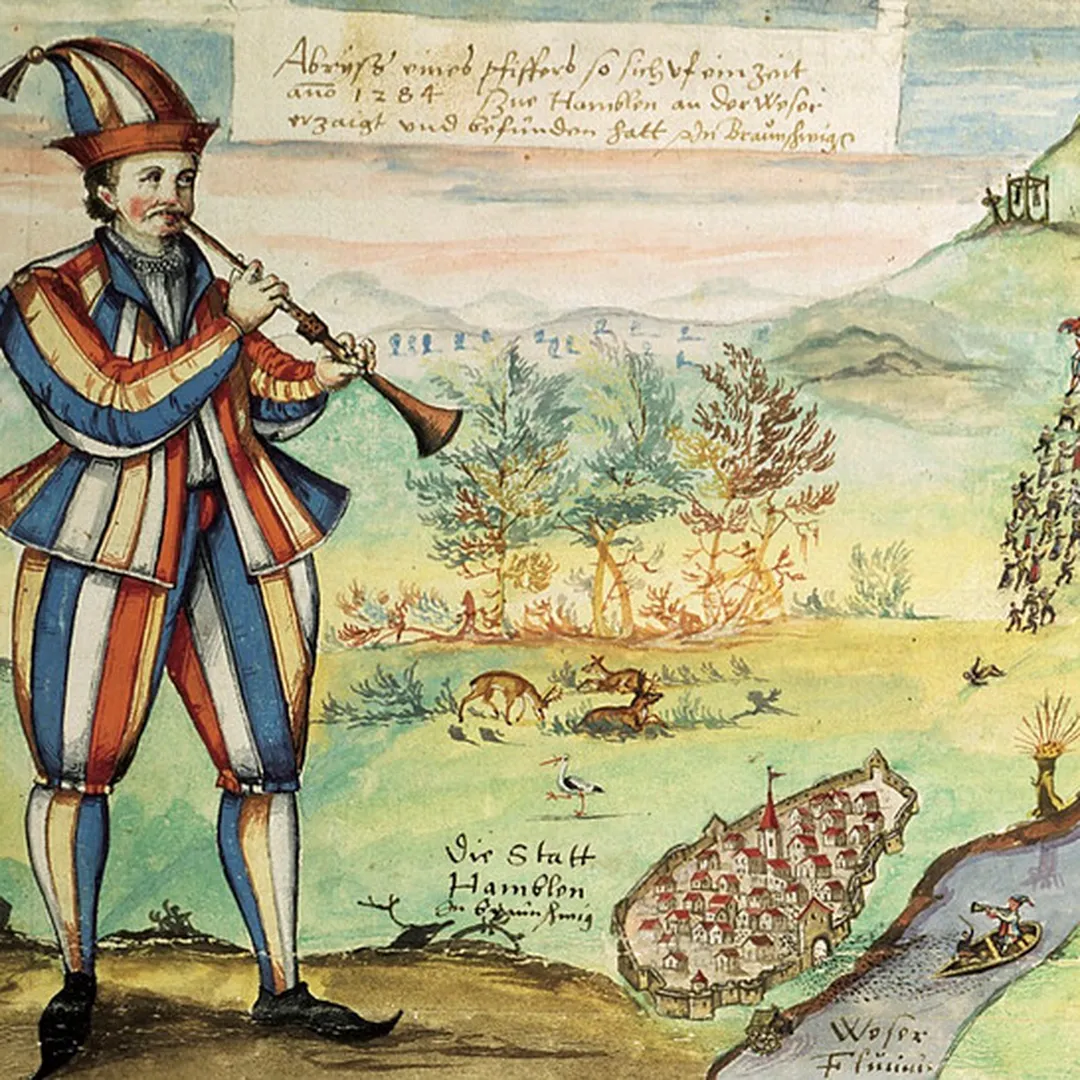 Abryss eines pfiffers so sich vf ein Zeit
año 1284 Zue Hamblen an der Weser
erzaigt vnd befunden hatt In Braunschwig
Die Statt
Hamblen
In braunschwig
Weser
Fluuius